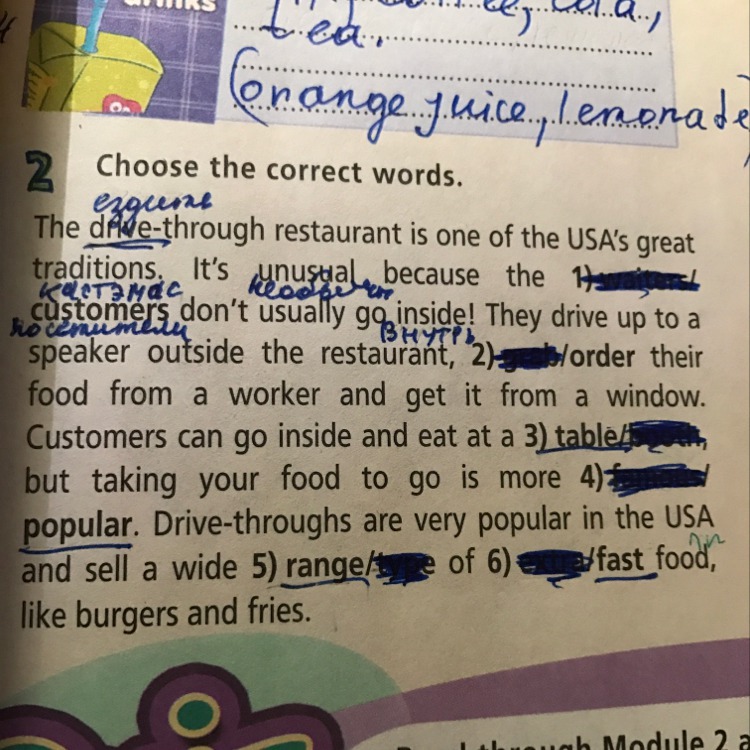 drinks
cola,
tea.
(orange juice, lemonade
2 Choose the correct words.
ездить
The drive-through restaurant is one of the USA's great
traditions. It's unusual because the 1) waiters/
кастэмас
customers don't usually go inside! They drive up to a
посетители внутрь
speaker outside the restaurant, 2) /order their
food from a worker and get it from a window.
Customers can go inside and eat at a 3) table/
but taking your food to go is more 4) famous/
popular. Drive-throughs are very popular in the USA
and sell a wide 5) range/type of 6) extra/fast food,
like burgers and fries.
through Module 2 a